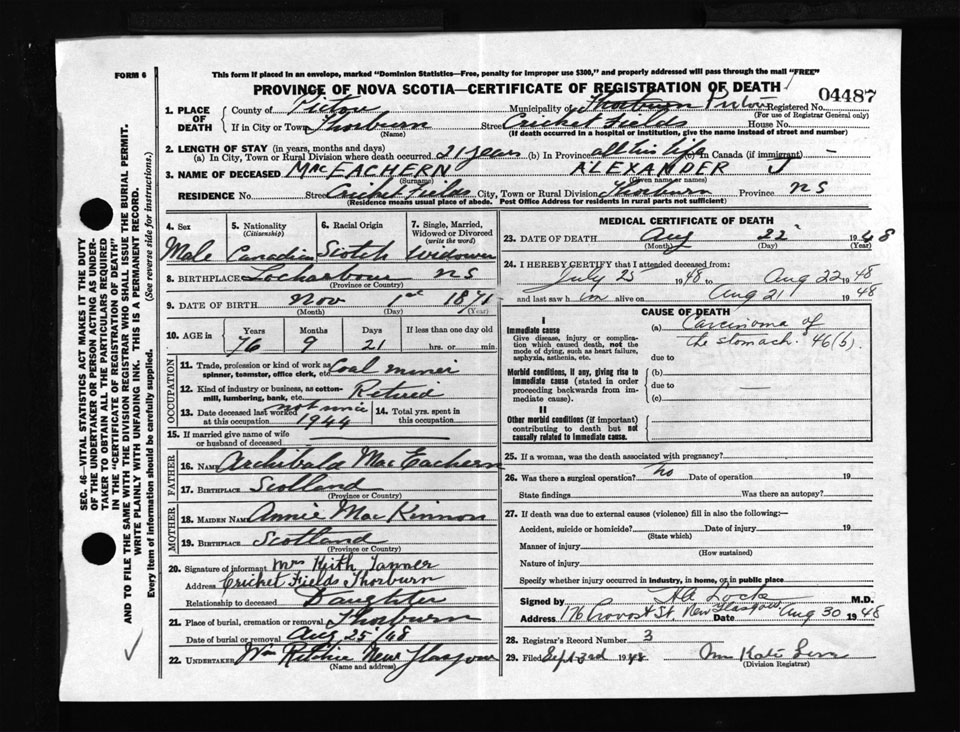 FORM 6
This form if placed in an envelope, marked "Dominion Statistics—Free, penalty for improper use $300," and properly addressed will pass through the mail "FREE"
PROVINCE OF NOVA SCOTIA—CERTIFICATE OF REGISTRATION OF DEATH
04487
1. PLACE OF DEATH County of Pictou Municipality of Thorburn Pictou Registered No.
(For use of Registrar General only)
If in City or Town Thorburn Street Cricket Fields House No.
(Name) (If death occurred in a hospital or institution, give the name instead of street and number)
2. LENGTH OF STAY (in years, months and days)
(a) In City, Town or Rural Division where death occurred 21 years (b) In Province all his life (c) In Canada (if immigrant) —
3. NAME OF DECEASED MacEACHERN ALEXANDER J
(Surname) (Given name or names)
RESIDENCE No. Street Cricket Fields City, Town or Rural Division Thorburn Province NS
(Residence means usual place of abode. Post Office Address for residents in rural parts not sufficient)
4. Sex 5. Nationality (Citizenship) 6. Racial Origin 7. Single, Married, Widowed or Divorced (write the word)
Male Canadian Scotch Widower
8. BIRTHPLACE NS
(Province or Country)
9. DATE OF BIRTH Nov 1st 1871
(Month) (Day) (Year)
10. AGE in Years Months Days If less than one day old
76 9 21 hrs. or min.
OCCUPATION
11. Trade, profession or kind of work as spinner, teamster, office clerk, etc. Coal miner
12. Kind of industry or business, as cotton-mill, lumbering, bank, etc. Retired
13. Date deceased last worked at this occupation not since 1944 14. Total yrs. spent in this occupation
15. If married give name of wife or husband of deceased
FATHER
16. NAME Archibald MacEachern
17. BIRTHPLACE Scotland
(Province or Country)
MOTHER
18. MAIDEN NAME Annie MacKinnon
19. BIRTHPLACE Scotland
(Province or Country)
20. Signature of informant Mrs Keith Tanner
Address Cricket Fields Thorburn
Relationship to deceased Daughter
21. Place of burial, cremation or removal Thorburn
Date of burial or removal Aug 25/48
22. UNDERTAKER Wm Ritchie New Glasgow
(Name and address)
MEDICAL CERTIFICATE OF DEATH
23. DATE OF DEATH Aug 22 1948
(Month) (Day) (Year)
24. I HEREBY CERTIFY that I attended deceased from:
July 25 1948 to Aug 22 1948
and last saw him alive on Aug 21 1948
CAUSE OF DEATH
I
Immediate cause
Give disease, injury or complication which caused death, not the mode of dying, such as heart failure, asphyxia, asthenia, etc.
(a) Carcinoma of
the stomach. 46(b).
due to
Morbid conditions, if any, giving rise to immediate cause (stated in order proceeding backwards from immediate cause).
(b)
due to —
(c)
II
Other morbid conditions (if important) contributing to death but not causally related to immediate cause.
25. If a woman, was the death associated with pregnancy?
26. Was there a surgical operation? no Date of operation 19
State findings Was there an autopsy?
27. If death was due to external causes (violence) fill in also the following:—
Accident, suicide or homicide? Date of injury 19
(State which)
Manner of injury
(How sustained)
Nature of injury
Specify whether injury occurred in industry, in home, or in public place
Signed by Locke M.D.
Address 176 Provost St. New Glasgow Date Aug 30 1948
28. Registrar's Record Number 3
29. Filed Sept 3rd 1948 Mrs Kate
(Division Registrar)
SEC. 46—VITAL STATISTICS ACT MAKES IT THE DUTY
OF THE UNDERTAKER OR PERSON ACTING AS UNDER-
TAKER TO OBTAIN ALL THE PARTICULARS REQUIRED
IN THE "CERTIFICATE OF REGISTRATION OF DEATH"
AND TO FILE THE SAME WITH THE DIVISION REGISTRAR WHO SHALL ISSUE THE BURIAL PERMIT.
WRITE PLAINLY WITH UNFADING INK. THIS IS A PERMANENT RECORD.
Every item of information should be carefully supplied. (See reverse side for instructions.)